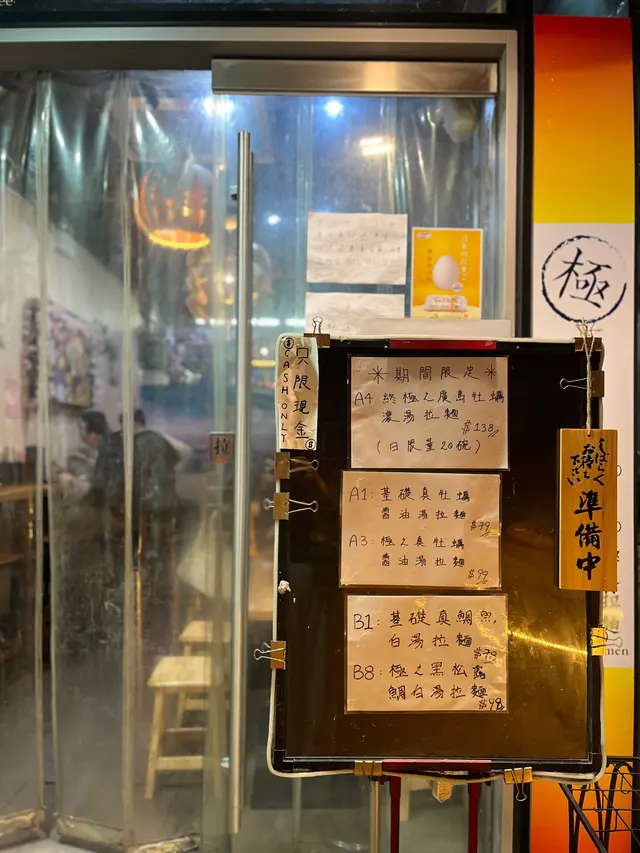 極
只限現金
CASH ONLY
＊期間限定＊
A4 終極之廣島牡蠣
濃湯拉麵
$138
(日限量20碗)
A1: 基礎真牡蠣
醬油湯拉麵
$79
A3: 極之真牡蠣
醬油湯拉麵
$99
B1: 基礎真鯛魚,
白湯拉麵
$79
B8: 極之黑松露
鯛白湯拉麵
$98
しばらく
お待ち
下さい
準備中
拉
men